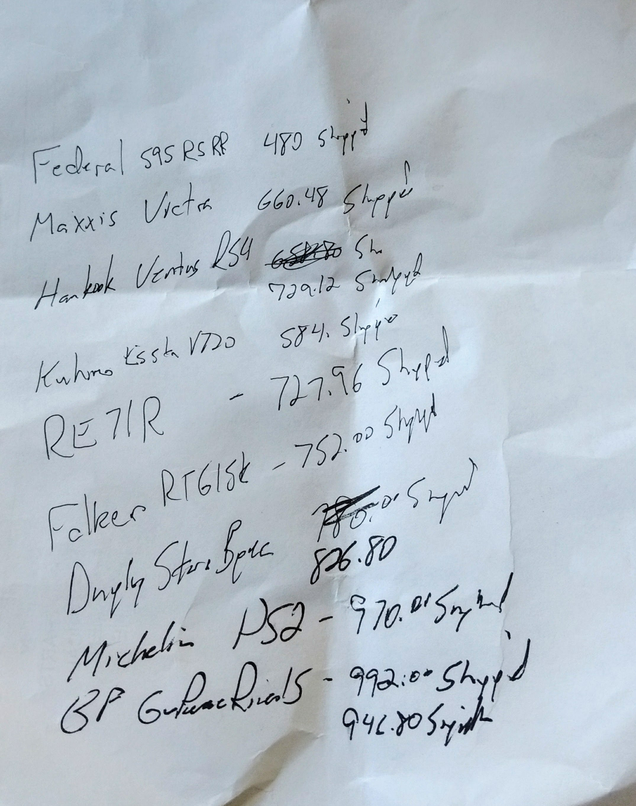 Federal 595 RS RR 480 Shipp'd
Maxxis Victra 660.48 Shipped
Hankook Ventus RS4 Sh
729.12 Shipped
Kuhmo V720 584. Shipp'd
RE71R - 727.96 Shipped
Falken RT615k - 752.00 Shipped
Dunlop Star Spec Shipped
826.80
Michelin PS2 - 970.00 Shipped
BF Rival S - 992.00 Shipp'd
946.80 Shipped